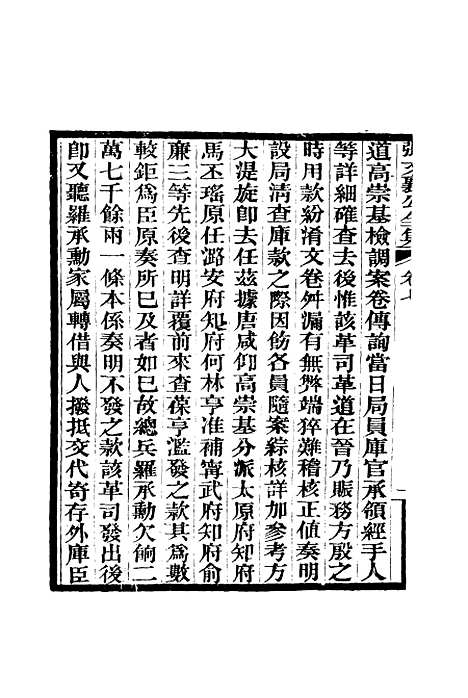 張文襄公全集 卷七 一
道高崇基檢調案卷傳詢當日局員庫官承領經手人
等詳細確查去後惟該革司革道在晉乃賑務方殷之
時用款紛淆文卷舛漏有無弊端猝難稽核正值奏明
設局淸查庫款之際因飭各員隨案綜核詳加參考方
大湜旋卽去任茲據唐咸仰高崇基分派太原府知府
馬丕瑤原任潞安府知府何林亨准補甯武府知府俞
廉三等先後查明詳覆前來查葆亨濫發之款其爲數
較鉅爲臣原奏所已及者如已故總兵羅承勳欠餉二
萬七千餘兩一條本係奏明不發之款該革司發出後
卽又聽羅承勳家屬轉借與人撥抵交代寄存外庫臣